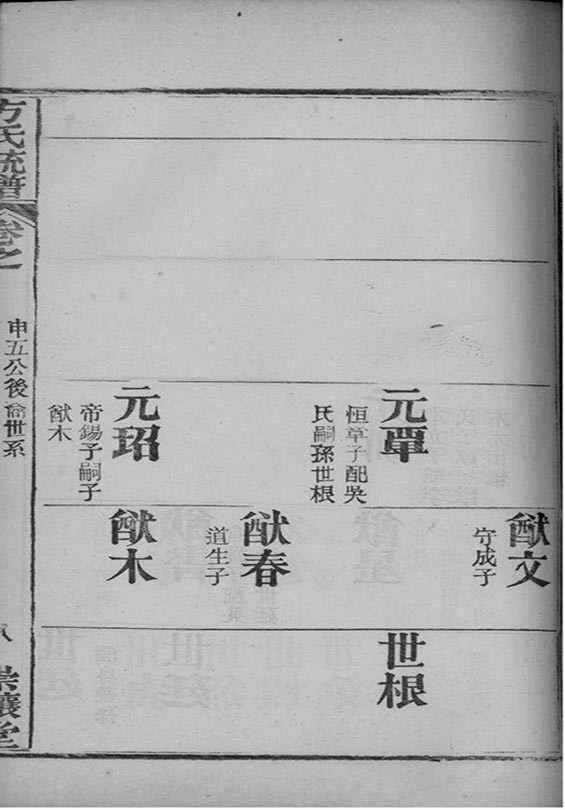 猷文
守成子
元覃
恒章子配吳
氏嗣孫世根
世根
猷春
道生子
元玿
帝錫子嗣子
猷木
猷木
方氏統譜
卷之
申五公後喬世系
八
崇讓堂